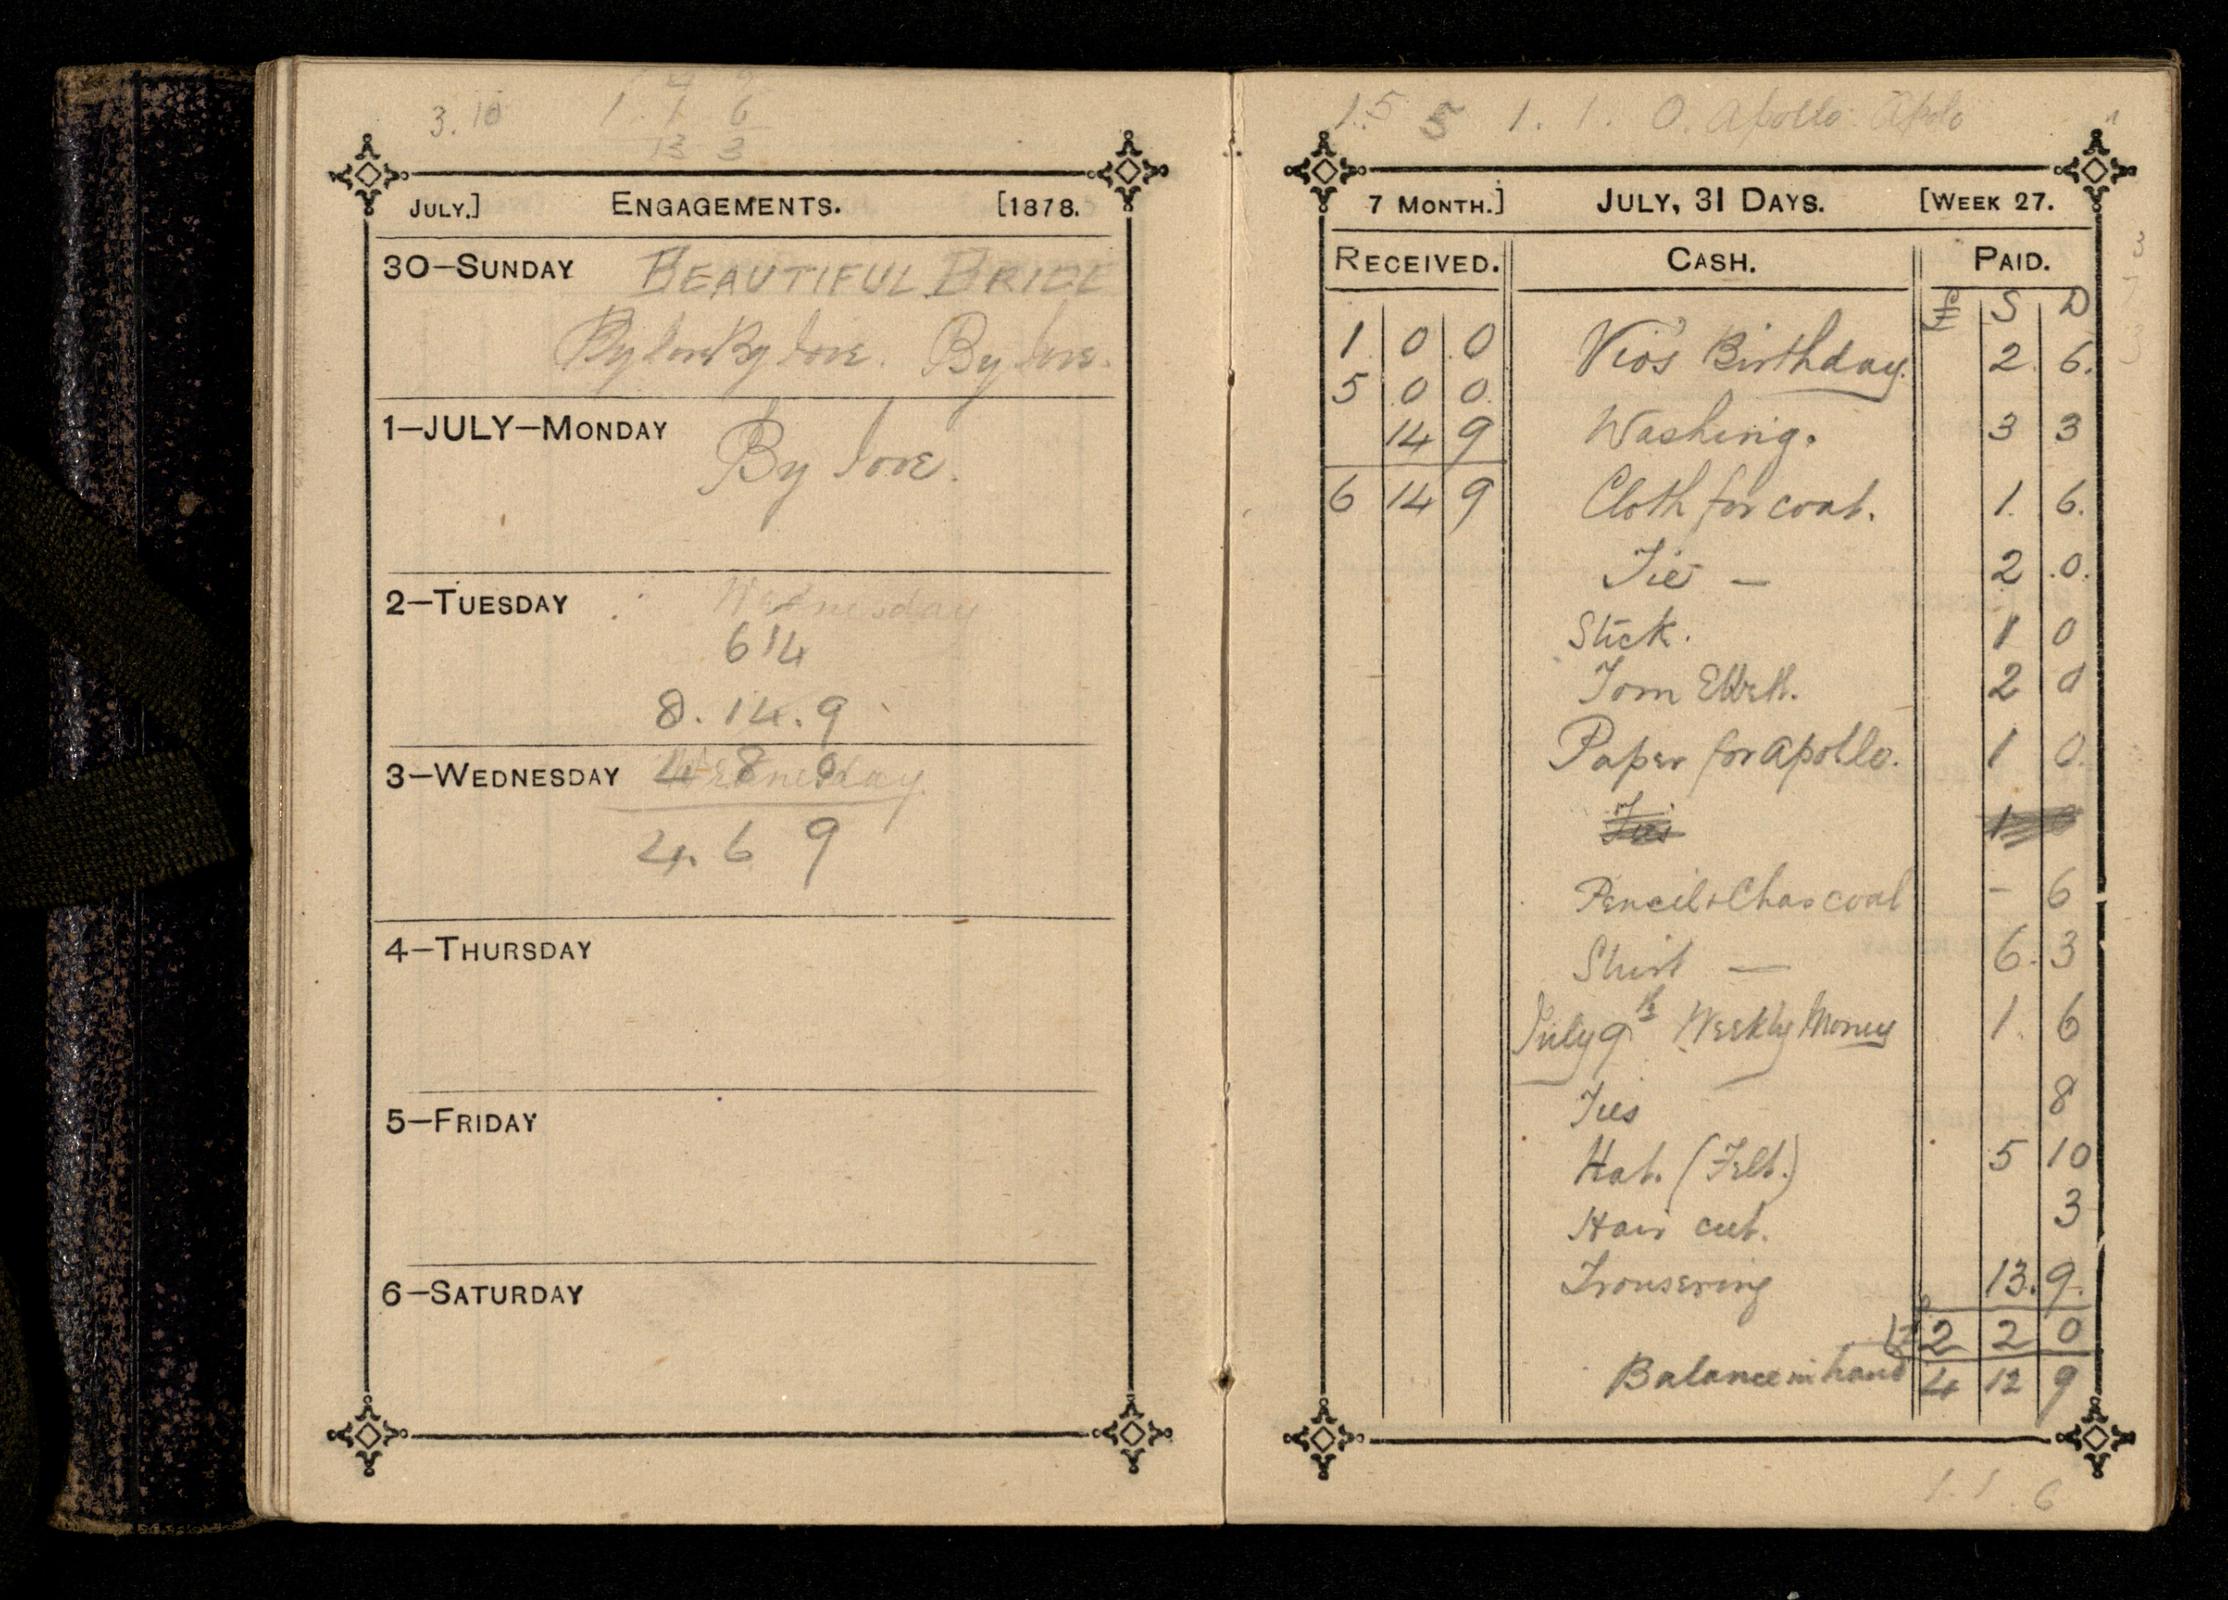 3. 10
4 9
1. 1 6
13 3
JULY.] ENGAGEMENTS. [1878.
30—SUNDAY BEAUTIFUL BRIDE
By love By love. By love.
1—JULY—MONDAY By love.
2—TUESDAY Wednesday
6 14
8. 14. 9
3—WEDNESDAY Wednesday
4 8 0
4. 6 9
4—THURSDAY
5—FRIDAY
6—SATURDAY
1.5 5 1. 1. 0. Apollo Apolo
7 MONTH.] JULY, 31 DAYS. [WEEK 27.
RECEIVED. CASH. PAID.
£ S D
1. 0. 0 Vio's Birthday. 2. 6.
5 0 0.
14 9 Washing. 3 3
6 14 9 Cloth for coat. 1. 6.
Tie — 2 .0.
Stick. 1 0
Tom 2 0
Paper for Apollo. 1 0.
Ties 1
Pencil & Charcoal – 6
Shirt — 6. 3
July 9th Weekly Money 1. 6
Ties 8
Hat. (Felt.) 5 10
Hair cut. 3
Trousering 13. 9.
2 2 0
Balance in hand 4 12 9
1. 1. 6
3
7
3